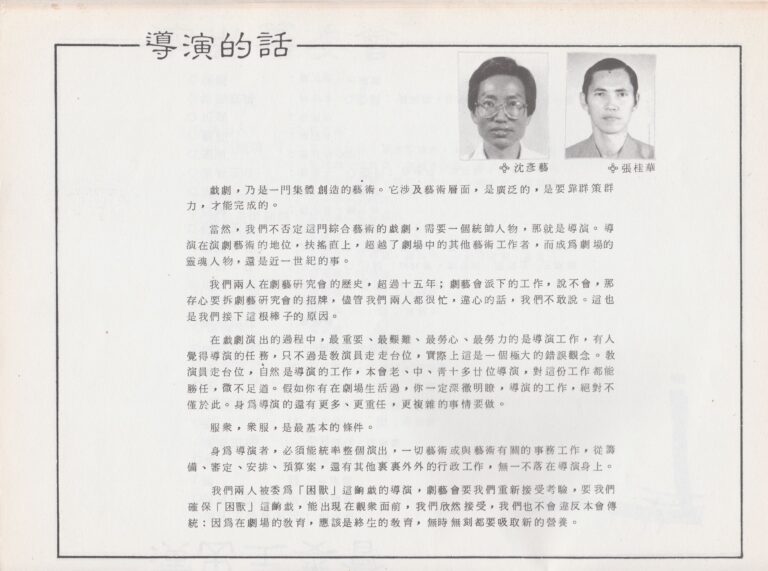 導演的話
沈彥藝
張桂華
戲劇，乃是一門集體創造的藝術。它涉及藝術層面，是廣泛的，是要靠群策群
力，才能完成的。
當然，我們不否定這門綜合藝術的戲劇，需要一個統帥人物，那就是導演。導
演在演劇藝術的地位，扶搖直上，超越了劇場中的其他藝術工作者，而成爲劇場的
靈魂人物，還是近一世紀的事。
我們兩人在劇藝研究會的歷史，超過十五年；劇藝會派下的工作，說不會，那
存心要拆劇藝研究會的招牌，儘管我們兩人都很忙，違心的話，我們不敢說。這也
是我們接下這根棒子的原因。
在戲劇演出的過程中，最重要、最艱難、最勞心、最勞力的是導演工作，有人
覺得導演的任務，只不過是教演員走走台位，實際上這是一個極大的錯誤觀念。教
演員走台位，自然是導演的工作，本會老、中、青十多廿位導演，對這份工作都能
勝任，微不足道。假如你有在劇場生活過，你一定深徹明瞭，導演的工作，絕對不
僅於此。身爲導演的還有更多、更重任，更複雜的事情要做。
服衆，衆服，是最基本的條件。
身爲導演者，必須能統率整個演出，一切藝術或與藝術有關的事務工作，從籌
備、審定、安排、預算案，還有其他裏裏外外的行政工作，無一不落在導演身上。
我們兩人被委爲「困獸」這齣戲的導演，劇藝會要我們重新接受考驗，要我們
確保「困獸」這齣戲，能出現在觀衆面前，我們欣然接受，我們也不會違反本會傳
統：因爲在劇場的教育，應該是終生的教育，無時無刻都要吸取新的營養。